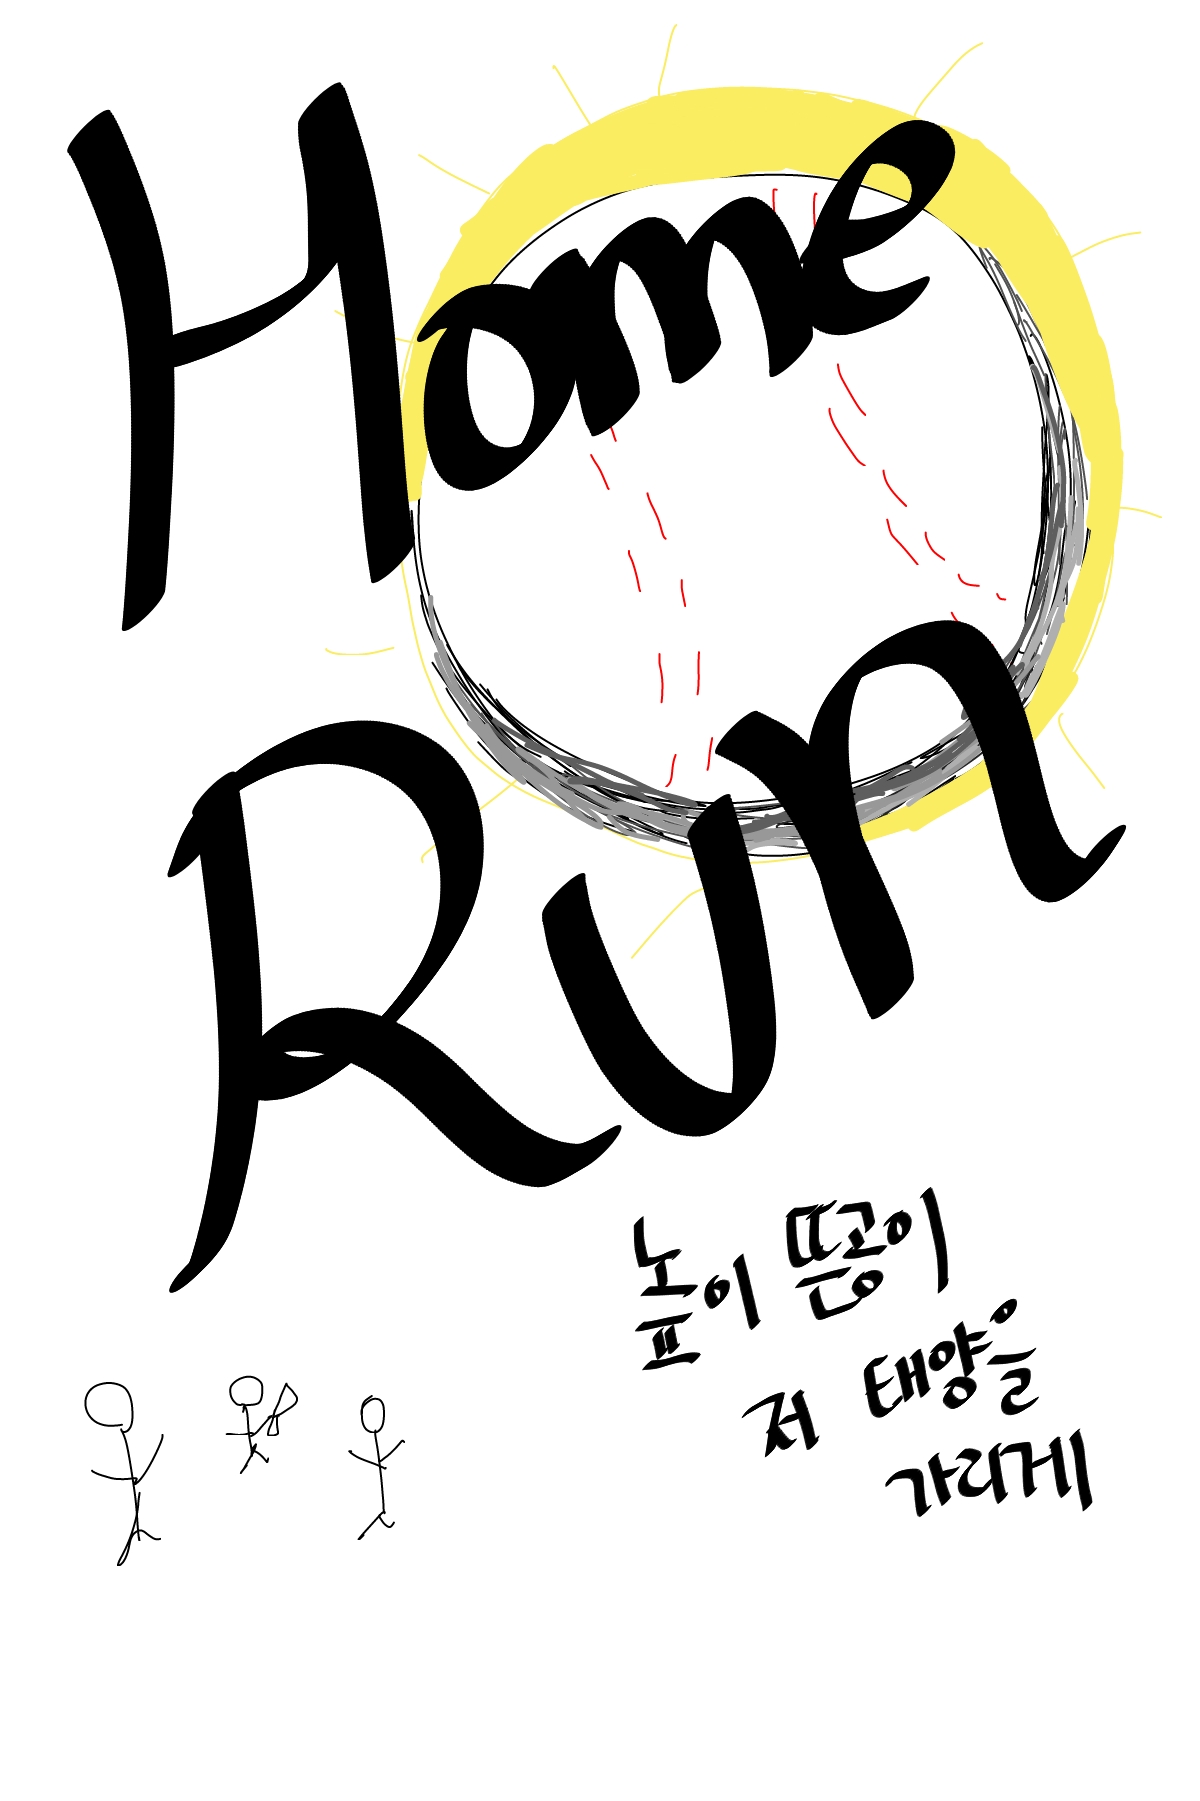 Home
Run
높이 뜸공이
저 태양을
가리게